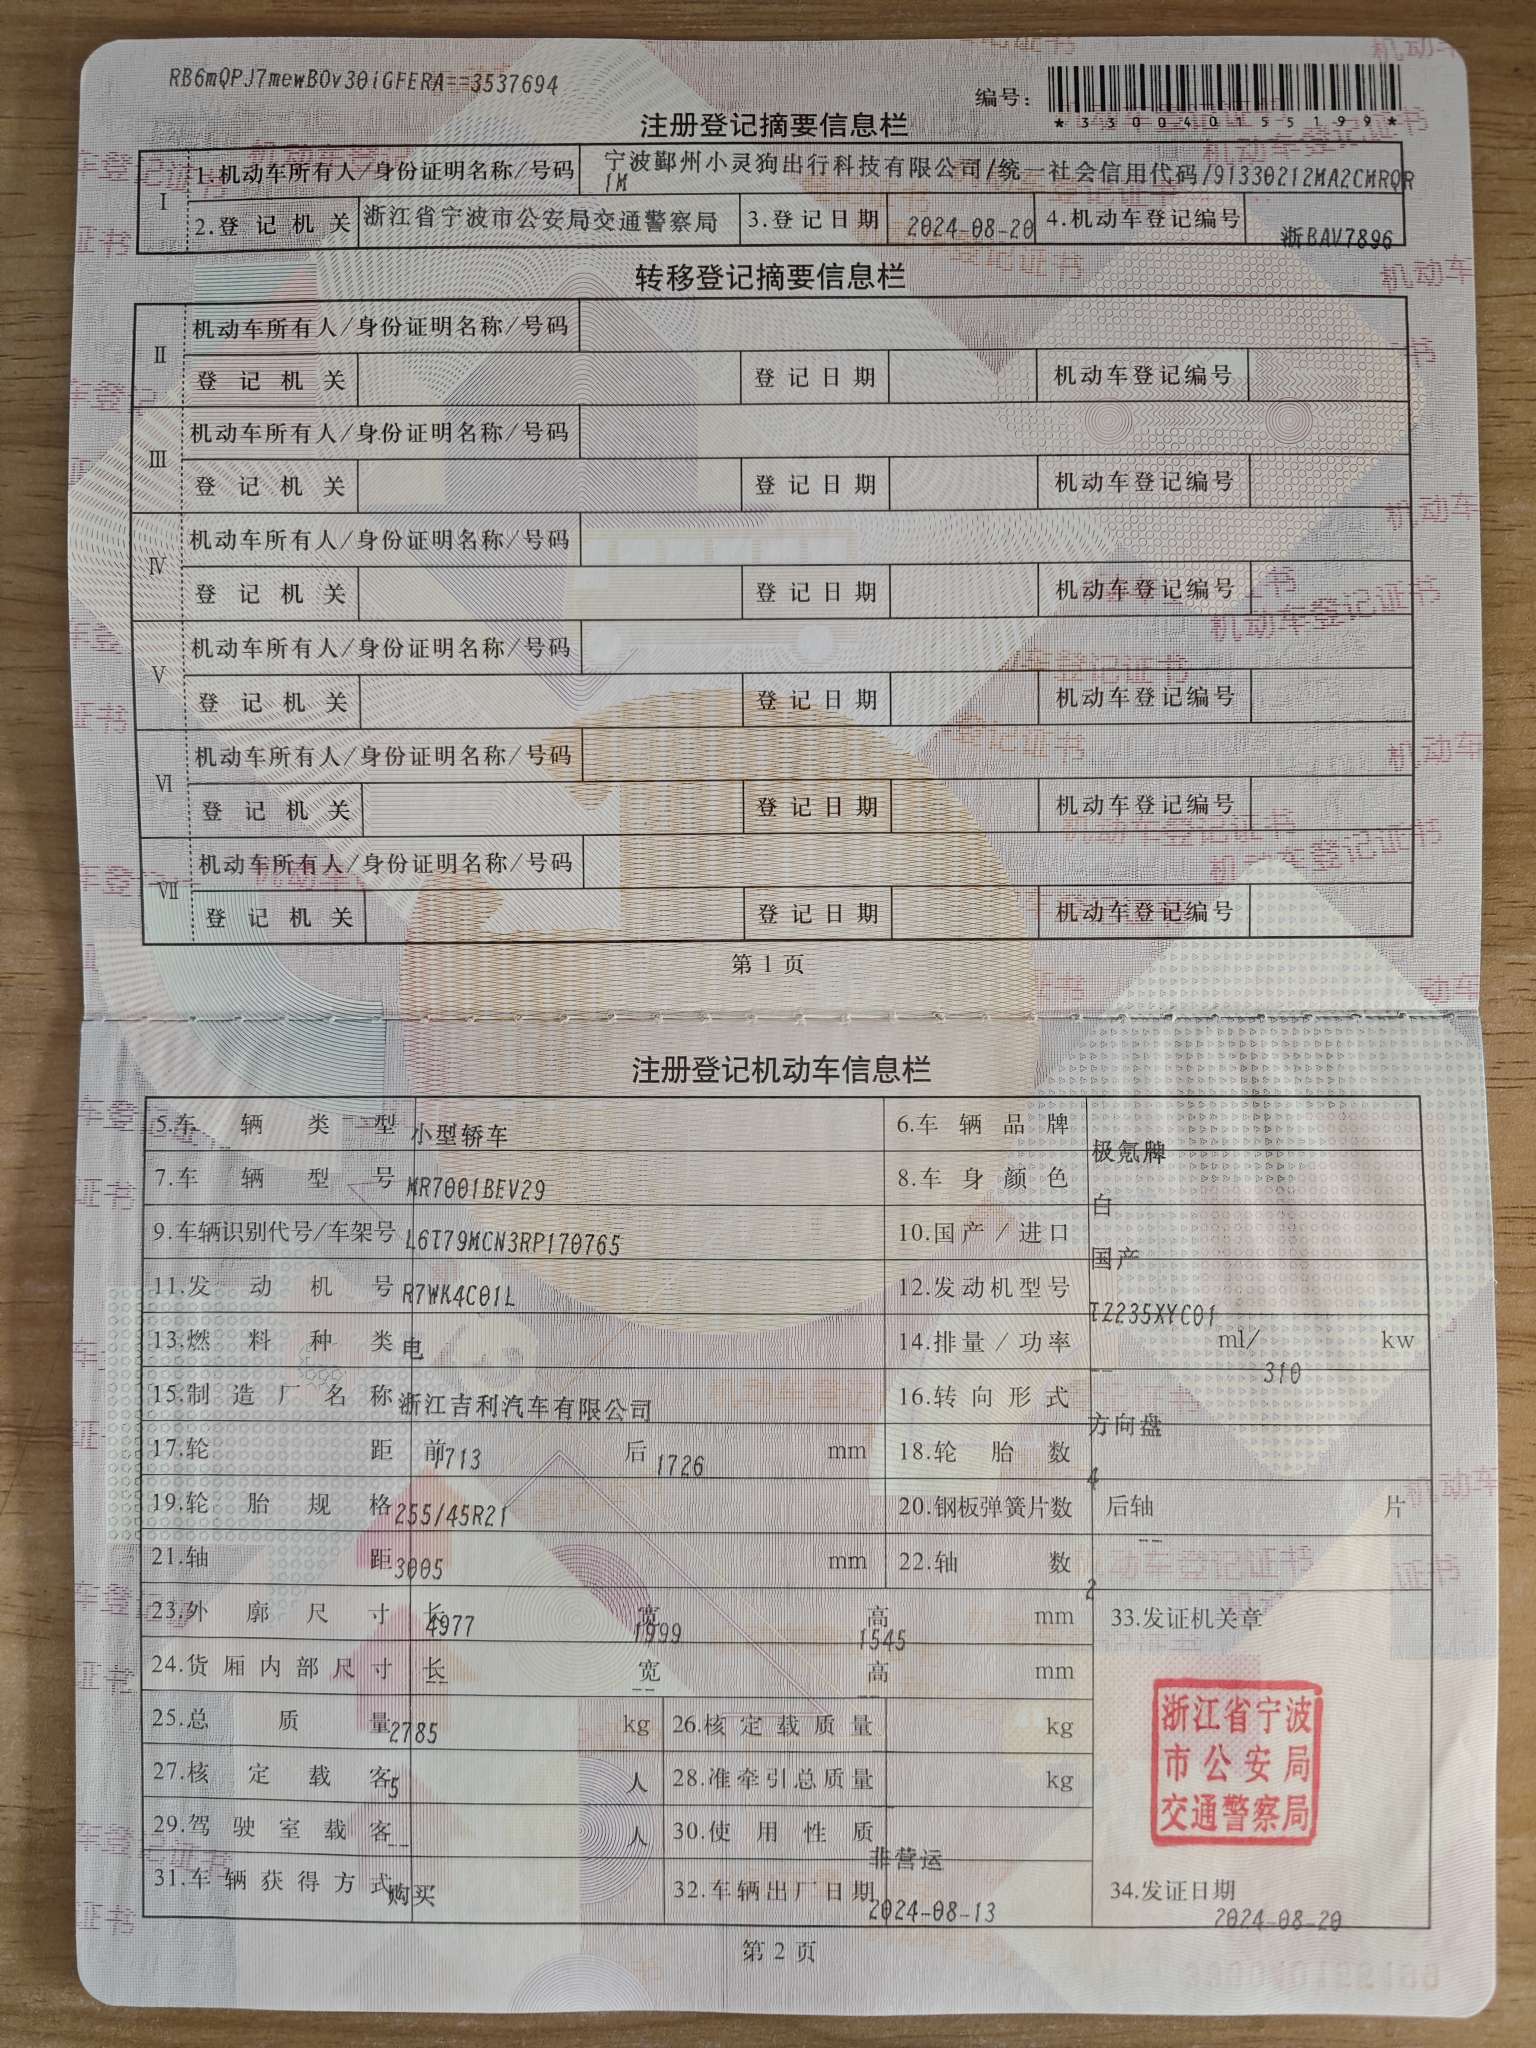 RB6mQPJ7mewBOv30iGFERA==3537694
编号：
*330040155199*
注册登记摘要信息栏
I 1.机动车所有人/身份证明名称/号码 宁波鄞州小灵狗出行科技有限公司/统一社会信用代码/91330212MA2CMRQR
1M
2.登记机关 浙江省宁波市公安局交通警察局 3.登记日期 2024-08-20 4.机动车登记编号 浙BAV7896
转移登记摘要信息栏
II 机动车所有人/身份证明名称/号码
登记机关 登记日期 机动车登记编号
III 机动车所有人/身份证明名称/号码
登记机关 登记日期 机动车登记编号
IV 机动车所有人/身份证明名称/号码
登记机关 登记日期 机动车登记编号
V 机动车所有人/身份证明名称/号码
登记机关 登记日期 机动车登记编号
VI 机动车所有人/身份证明名称/号码
登记机关 登记日期 机动车登记编号
VII 机动车所有人/身份证明名称/号码
登记机关 登记日期 机动车登记编号
第 1 页
注册登记机动车信息栏
5.车辆类型 小型轿车 6.车辆品牌 极氪牌
7.车辆型号 MR7001BEV29 8.车身颜色 白
9.车辆识别代号/车架号 L6T79MCN3RP170765 10.国产/进口 国产
11.发动机号 R7WK4C01L 12.发动机型号 TZ235XYC01
13.燃料种类 电 14.排量/功率 -- ml/ 310 kw
15.制造厂名称 浙江吉利汽车有限公司 16.转向形式 方向盘
17.轮距 前 1713 后 1726 mm 18.轮胎数 4
19.轮胎规格 255/45R21 20.钢板弹簧片数 后轴 -- 片
21.轴距 3005 mm 22.轴数 2
23.外廓尺寸 长 4977 宽 1999 高 1545 mm 33.发证机关章
24.货厢内部尺寸 长 -- 宽 -- 高 -- mm
25.总质量 2785 kg 26.核定载质量 kg
27.核定载客 5 人 28.准牵引总质量 kg
29.驾驶室载客 -- 人 30.使用性质 非营运
31.车辆获得方式 购买 32.车辆出厂日期 2024-08-13 34.发证日期 2024-08-20
浙江省宁波
市公安局
交通警察局
第 2 页